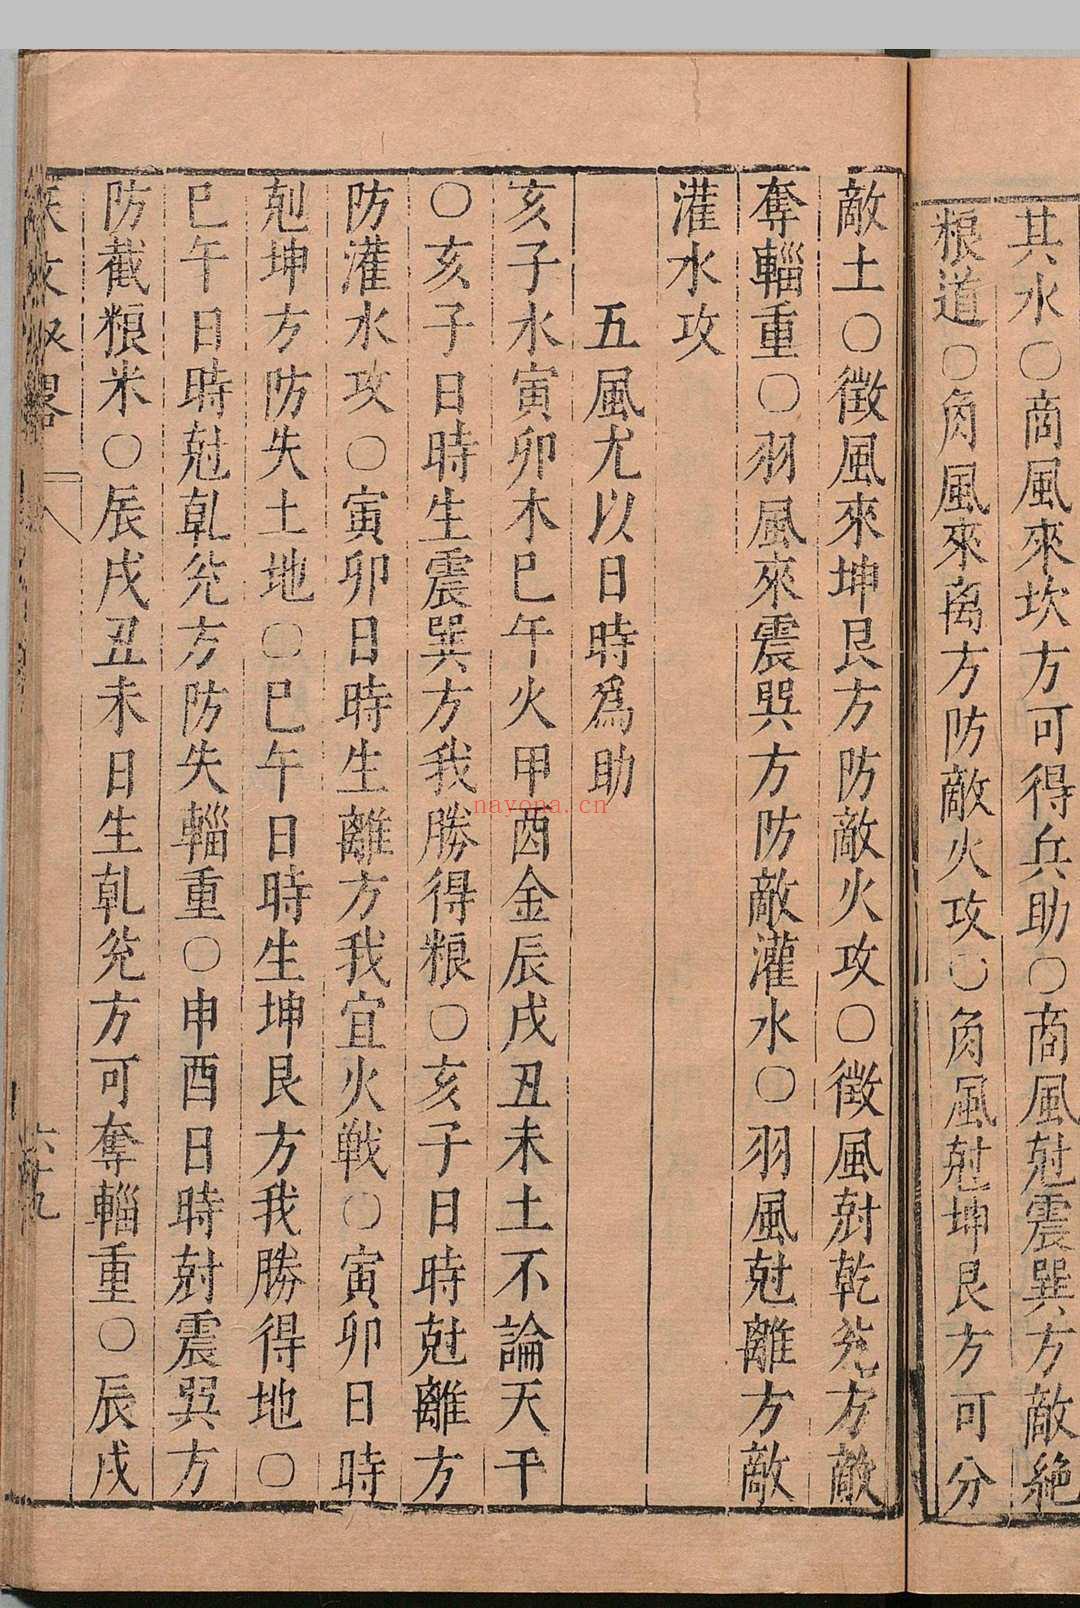 其水○商風來坎方可得兵助○商風尅震巽方敵絶
粮道○角風來离方防敵火攻○角風尅坤艮方可分
敵土○徵風來坤艮方防敵火攻○徵風尅乾兊方敵
奪輜重○羽風來震巽方防敵灌水○羽風尅離方敵
灌水攻
五風尤以日時爲助
亥子水寅卯木巳午火甲酉金辰戌丑未土不論天干
○亥子日時生震巽方我勝得粮○亥子日時尅離方
防灌水攻○寅卯日時生離方我宜火戰○寅卯日時
尅坤方防失土地○巳午日時生坤艮方我勝得地○
巳午日時尅乹兊方防失輜重○申酉日時尅震巽方
防截粮米○辰戌丑未日生乹兊方可奪輜重○辰戌
六十九
nayona.cn